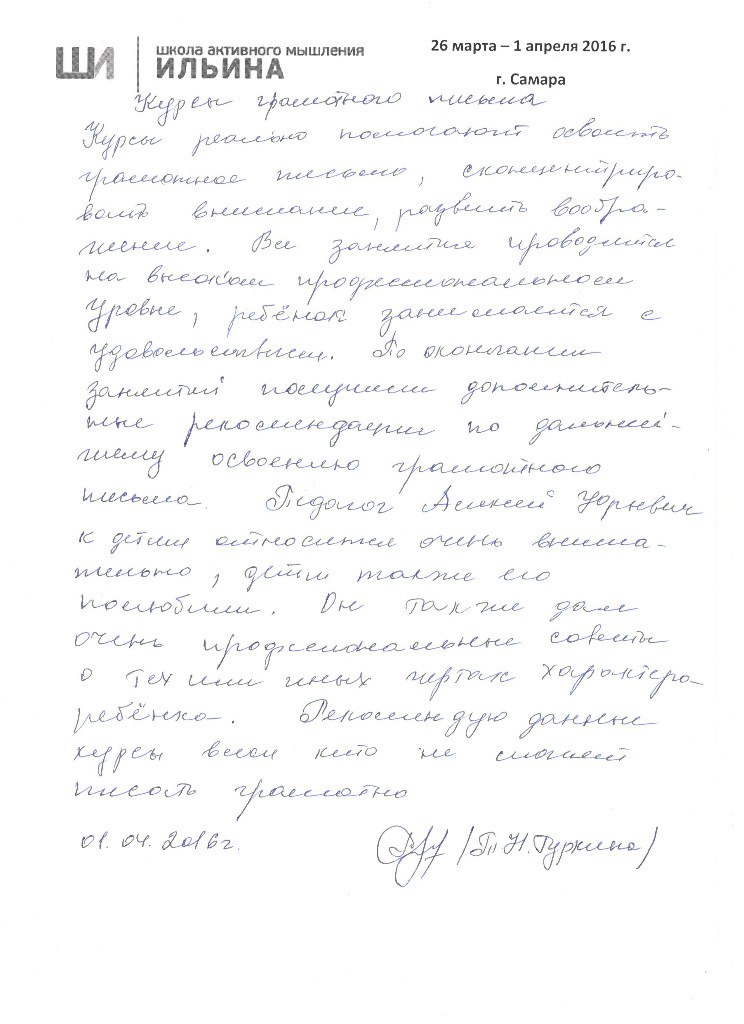 ШИ
школа активного мышления
ИЛЬИНА
26 марта – 1 апреля 2016 г.
г. Самара
Курсы грамотного письма
Курсы реально помогают освоить
грамотное письмо, сконцентриро-
вать внимание, развить вообра-
жение. Все занятия проводятся
на высоком профессиональном
уровне, ребёнок занимается с
удовольствием. По окончании
занятий получили дополнитель-
ные рекомендации по дальней-
шему освоению грамотного
письма. Педагог Алексей Юрьевич
к детям относится очень внима-
тельно, дети также его
полюбили. Он также дал
очень профессиональные советы
о тех или иных чертах характера
ребёнка. Рекомендую данные
курсы всем кто не может
писать грамотно
01.04.2016г. (Т.Н. Гуркина)